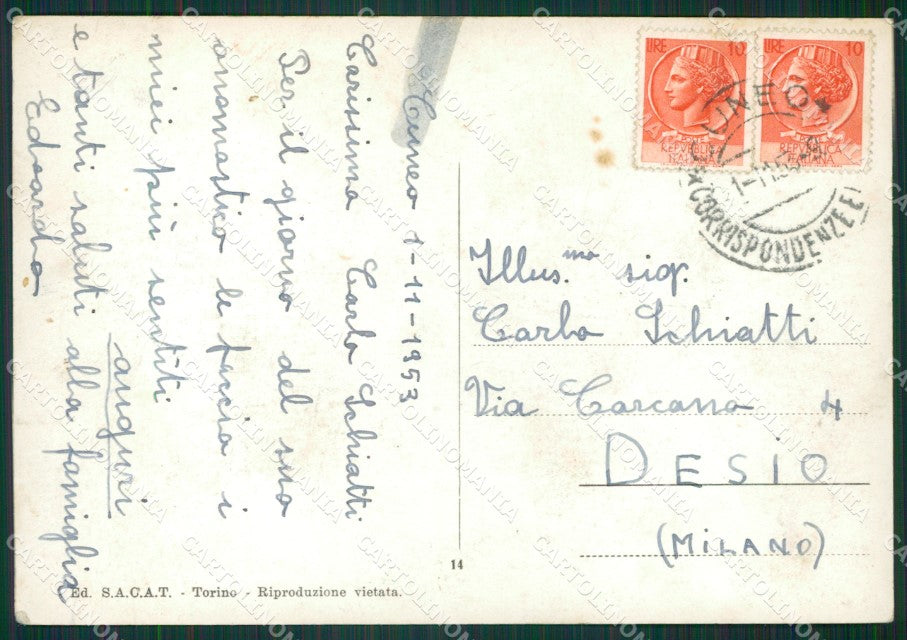 Cuneo 1-11-1953
Carissimo Carlo Schiatti
Per il giorno del suo
onomastico le faccio i
miei più sentiti
auguri
e tanti saluti alla famiglia
Edoardo
LIRE 10
POSTE
REPVBBLICA
ITALIANA
LIRE 10
POSTE
REPVBBLICA
ITALIANA
CUNEO
1-11-53
CORRISPONDENZE E
Illus.mo sig.
Carlo Schiatti
Via Carcano 4
DESIO
(MILANO)
14
Ed. S.A.C.A.T. - Torino - Riproduzione vietata.
CARTOLINOMANIA